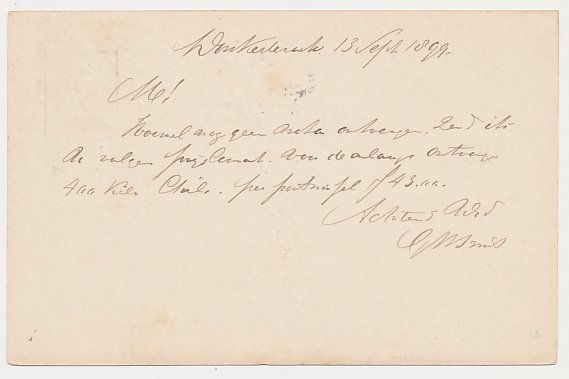 Donkerbroek 13 Sept 1899.
M!
Hoewel nog geen nota ontvangen. Zend ik
de volgen van de onlangs ontvange
400 Kilo Chili. per postwissel f 43.00.
Achtend Uwd